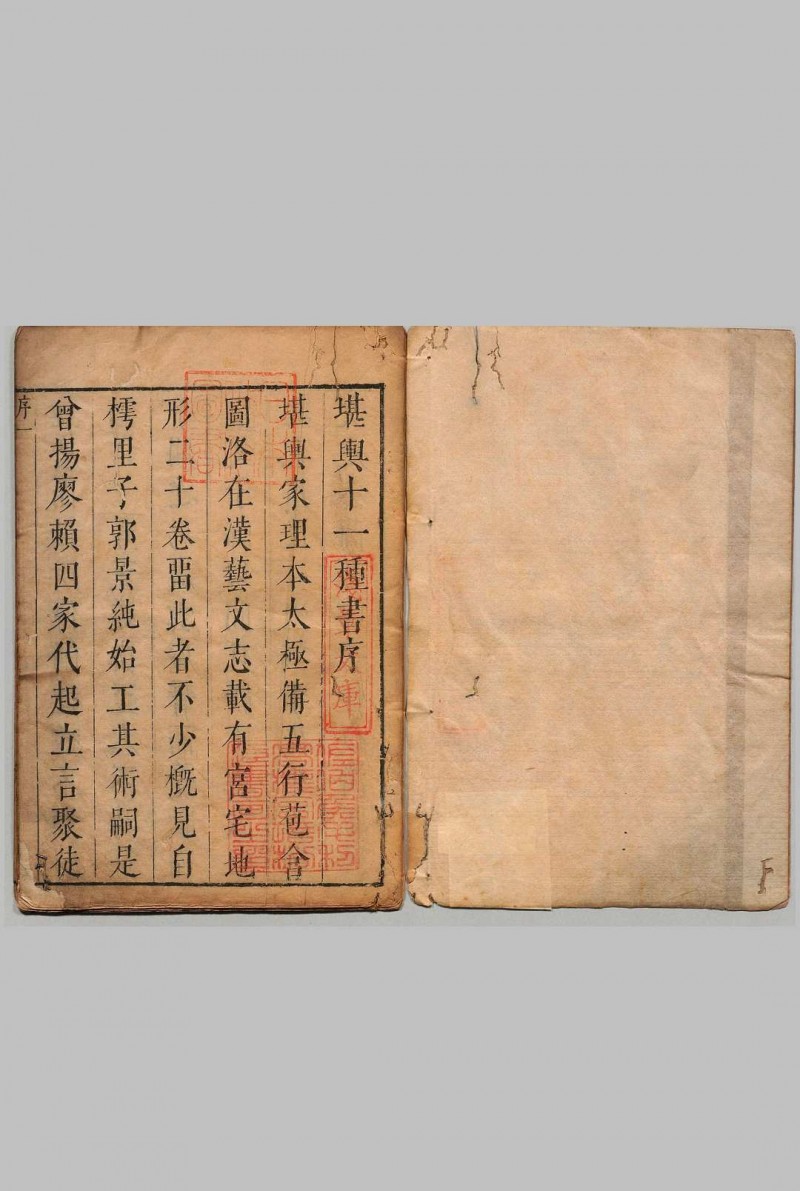 堪輿十一種書序
堪輿家理本太極備五行苞含
圖洛在漢藝文志載有宮宅地
形二十卷畱此者不少槪見自
樗里子郭景純始工其術嗣是
曾揚廖賴四家代起立言聚徒
序 一
庫